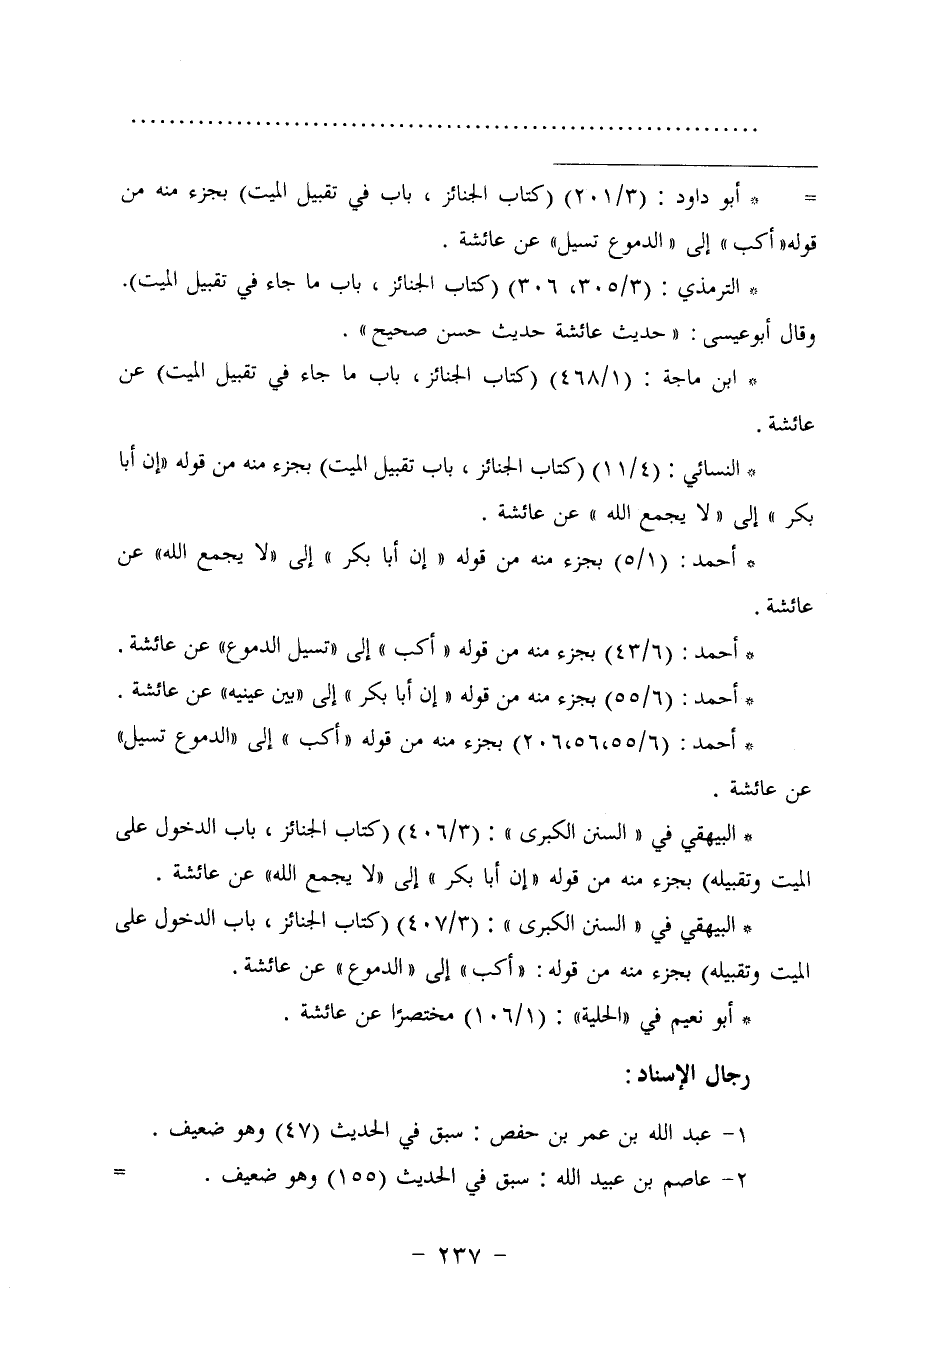 = * أبو داود : (٢٠١/٣) (كتاب الجنائز ، باب في تقبيل الميت) بجزء منه من
قوله« أكب » إلى « الدموع تسيل» عن عائشة .
* الترمذي : (٣٠٥/٣، ٣٠٦) (كتاب الجنائز ، باب ما جاء في تقبيل الميت).
وقال أبوعيسى : « حديث عائشة حديث حسن صحيح» .
* ابن ماجة : (٤٦٨/١) (كتاب الجنائز، باب ما جاء في تقبيل الميت) عن
عائشة .
* النسائي : (١١/٤) (كتاب الجنائز ، باب تقبيل الميت) بجزء منه من قوله «إن أبا
بكر » إلى « لا يجمع الله » عن عائشة .
* أحمد : (٥/١) بجزء منه من قوله « إن أبا بكر » إلى «لا يجمع الله» عن
عائشة .
* أحمد : (٤٣/٦) بجزء منه من قوله « أكب » إلى «تسيل الدموع» عن عائشة .
* أحمد : (٥٥/٦) بجزء منه من قوله « إن أبا بكر » إلى «بين عينيه» عن عائشة .
* أحمد : (٥٥/٦،٥٦،٢٠٦) بجزء منه من قوله «أكب » إلى «الدموع تسيل»
عن عائشة .
* البيهقي في « السنن الكبرى » : (٤٠٦/٣) (كتاب الجنائز ، باب الدخول على
الميت وتقبيله) بجزء منه من قوله «إن أبا بكر » إلى «لا يجمع الله» عن عائشة .
* البيهقي في « السنن الكبرى » : (٤٠٧/٣) (كتاب الجنائز ، باب الدخول على
الميت وتقبيله) بجزء منه من قوله : « أكب» إلى « الدموع» عن عائشة .
* أبو نعيم في «الحلية» : (١٠٦/١) مختصرًا عن عائشة .
رجال الإسناد :
١- عبد الله بن عمر بن حفص : سبق في الحديث (٤٧) وهو ضعيف .
٢- عاصم بن عبيد الله : سبق في الحديث (١٥٥) وهو ضعيف . =
- ٢٣٧ -